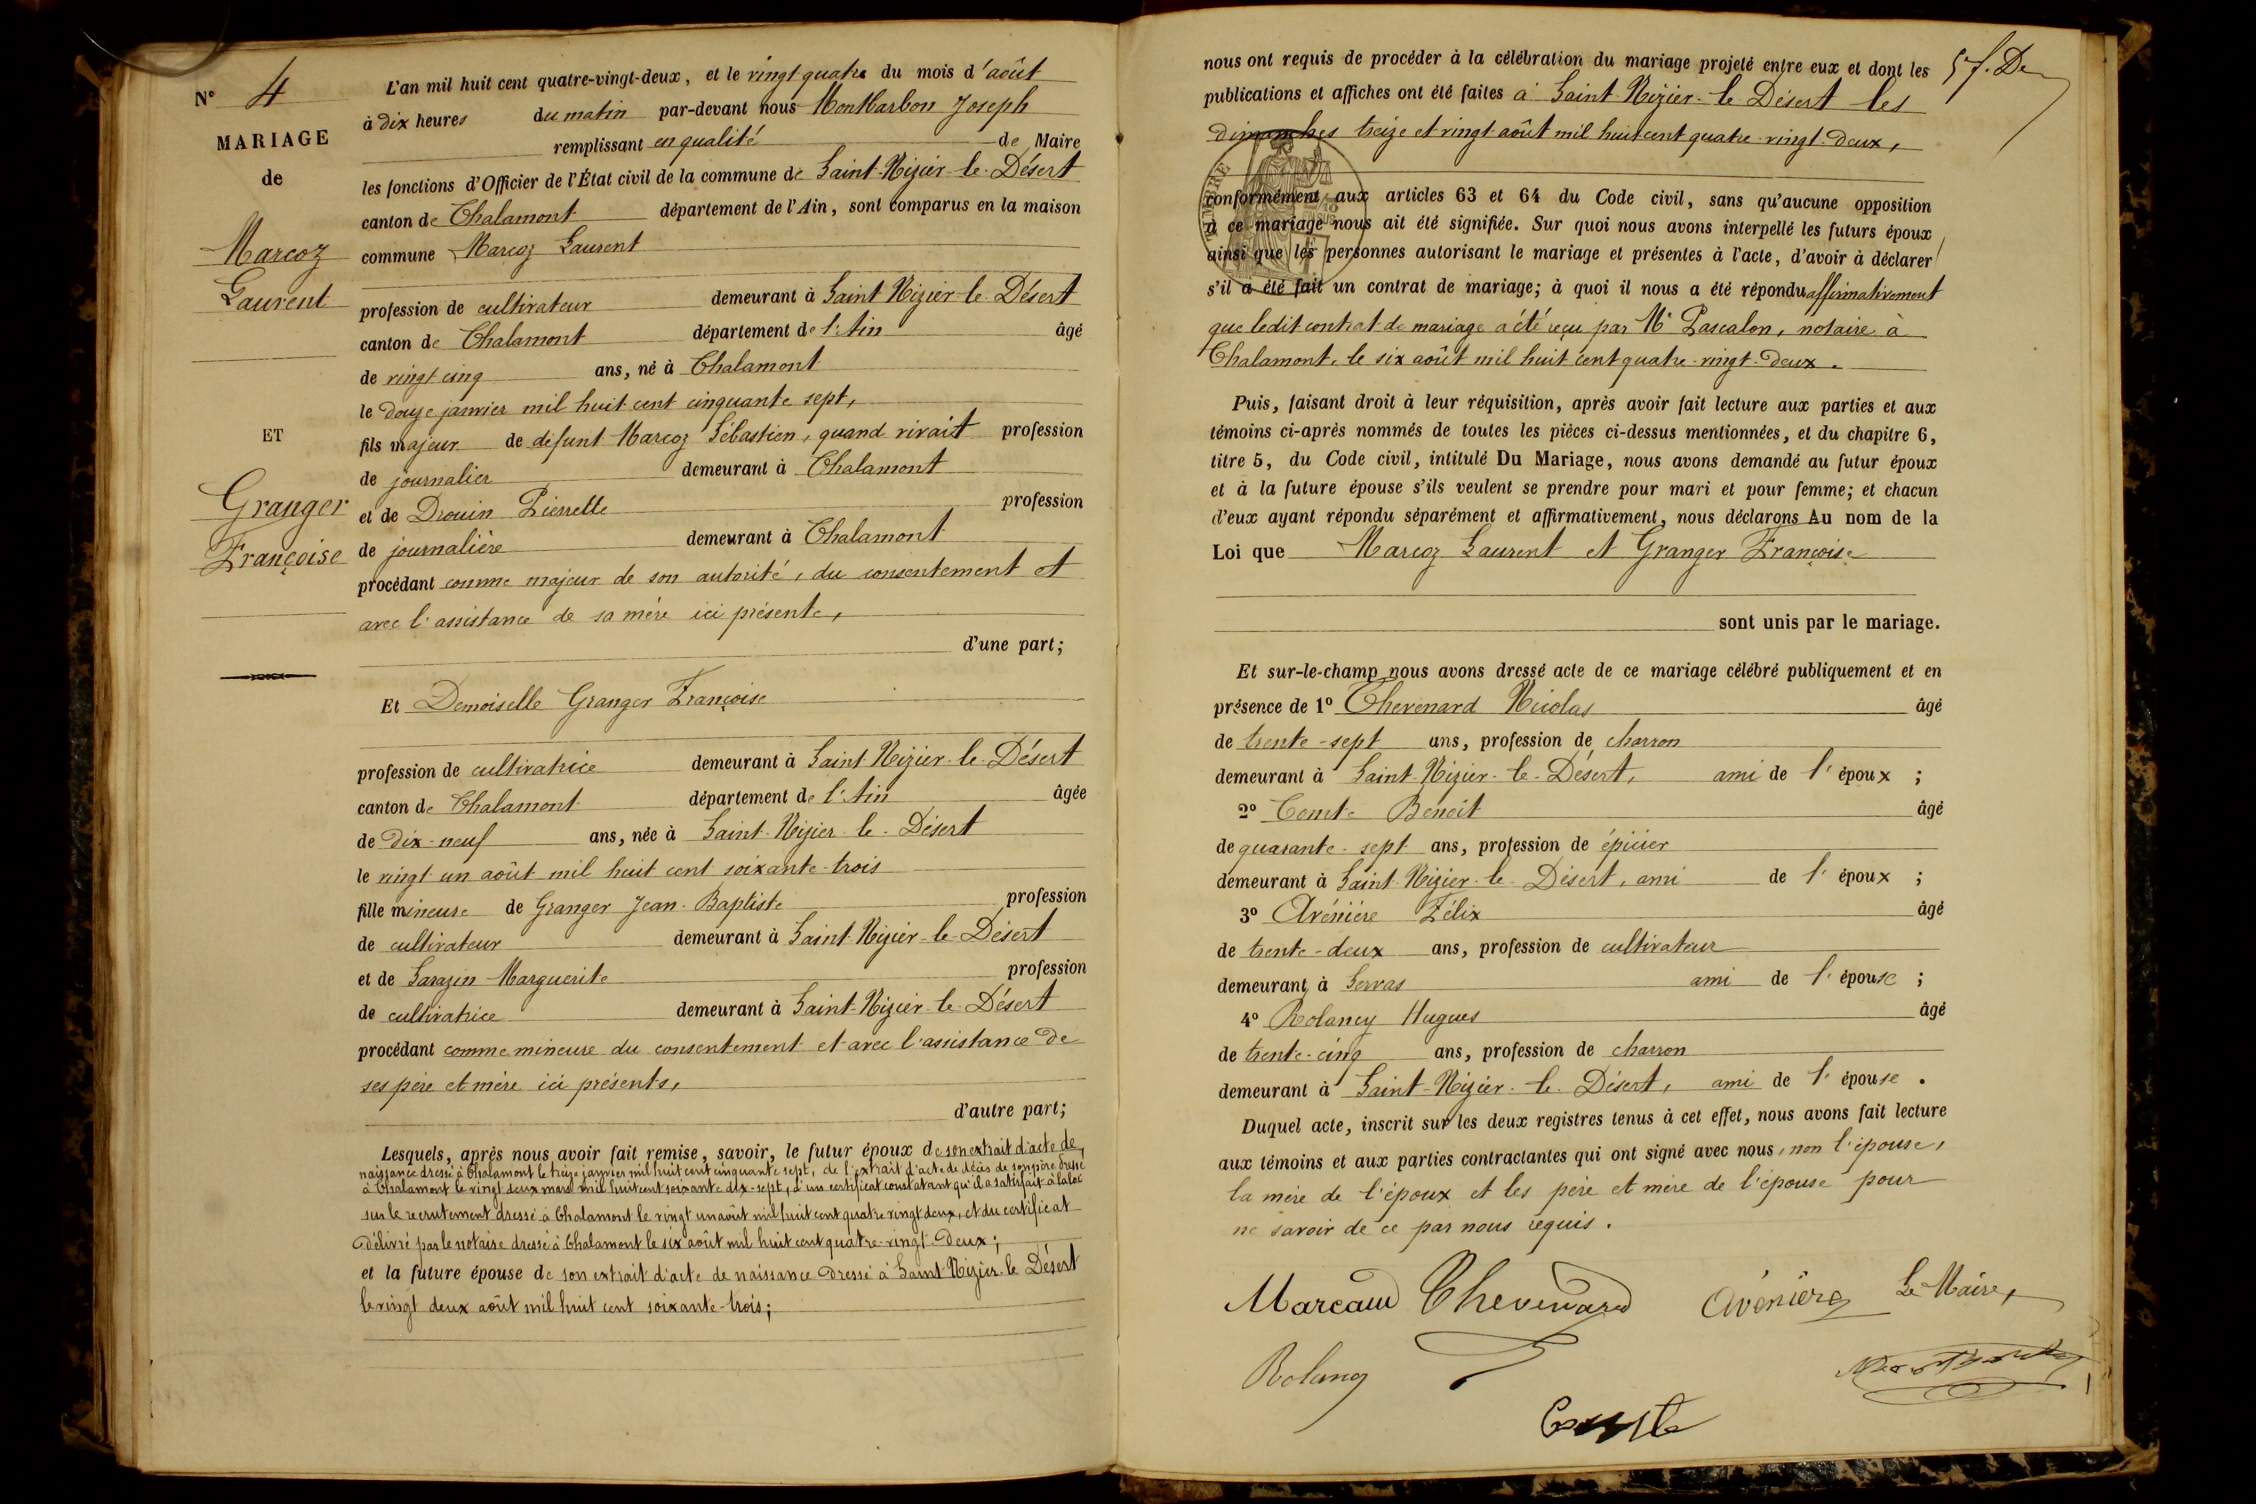 N° 4
MARIAGE
de
Marcoz
Laurent
ET
Granger
Françoise
L'an mil huit cent quatre-vingt-deux, et le vingt quatre du mois d'août
à dix heures du matin par-devant nous Montbarbon Joseph
remplissant en qualité de Maire
les fonctions d'Officier de l'État civil de la commune de Saint-Nizier-le-Désert
canton de Chalamont département de l'Ain, sont comparus en la maison
commune Marcoz Laurent
profession de cultivateur demeurant à Saint Nizier-le-Désert
canton de Chalamont département de l'Ain âgé
de vingt cinq ans, né à Chalamont
le douze janvier mil huit cent cinquante sept,
fils majeur de défunt Marcoz Sébastien, quand vivait profession
de journalier demeurant à Chalamont
et de Drouin Pierrette profession
de journalière demeurant à Chalamont
procédant comme majeur de son autorité, du consentement et
avec l'assistance de sa mère ici présente,
d'une part;
Et Demoiselle Granger Françoise
profession de cultivatrice demeurant à Saint Nizier-le-Désert
canton de Chalamont département de l'Ain âgée
de dix-neuf ans, née à Saint-Nizier-le-Désert
le vingt un août mil huit cent soixante-trois
fille mineure de Granger Jean-Baptiste profession
de cultivateur demeurant à Saint-Nizier-le-Désert
et de Sarazin Marguerite profession
de cultivatrice demeurant à Saint-Nizier-le-Désert
procédant comme mineure du consentement et avec l'assistance de
ses père et mère ici présents,
d'autre part;
Lesquels, après nous avoir fait remise, savoir, le futur époux de son extrait d'acte de
naissance dressé à Chalamont le treize janvier mil huit cent cinquante sept, de l'extrait d'acte de décès de son père dressé
à Chalamont le vingt deux mars mil huit cent soixante dix-sept, d'un certificat constatant qu'il a satisfait à la loi
sur le recrutement dressé à Chalamont le vingt un août mil huit cent quatre vingt deux, et du certificat
délivré par le notaire dressé à Chalamont le six août mil huit cent quatre-vingt-deux;
et la future épouse de son extrait d'acte de naissance dressé à Saint-Nizier-le Désert
le vingt deux août mil huit cent soixante-trois;
5 f. De
nous ont requis de procéder à la célébration du mariage projeté entre eux et dont les
publications et affiches ont été faites à Saint-Nizier-le Désert les
dimanches treize et vingt août mil huit cent quatre-vingt-deux,
TIMBRE
conformément aux articles 63 et 64 du Code civil, sans qu'aucune opposition
à ce mariage nous ait été signifiée. Sur quoi nous avons interpellé les futurs époux,
ainsi que les personnes autorisant le mariage et présentes à l'acte, d'avoir à déclarer
s'il a été fait un contrat de mariage; à quoi il nous a été répondu affirmativement
que ledit contrat de mariage a été reçu par Me Pascalon, notaire à
Chalamont, le six août mil huit cent quatre-vingt-deux.
Puis, faisant droit à leur réquisition, après avoir fait lecture aux parties et aux
témoins ci-après nommés de toutes les pièces ci-dessus mentionnées, et du chapitre 6,
titre 5, du Code civil, intitulé Du Mariage, nous avons demandé au futur époux
et à la future épouse s'ils veulent se prendre pour mari et pour femme; et chacun
d'eux ayant répondu séparément et affirmativement, nous déclarons Au nom de la
Loi que Marcoz Laurent et Granger Françoise
sont unis par le mariage.
Et sur-le-champ nous avons dressé acte de ce mariage célébré publiquement et en
présence de 1° Chevenard Nicolas âgé
de trente-sept ans, profession de charron
demeurant à Saint-Nizier-le-Désert, ami de l'époux ;
2° Comte Benoit âgé
de quarante-sept ans, profession de épicier
demeurant à Saint-Nizier-le Désert, ami de l'époux ;
3° Avénière Félix âgé
de trente-deux ans, profession de cultivateur
demeurant à Servas ami de l'épouse ;
4° Rolancy Hugues âgé
de trente-cinq ans, profession de charron
demeurant à Saint-Nizier-le-Désert, ami de l'épouse .
Duquel acte, inscrit sur les deux registres tenus à cet effet, nous avons fait lecture
aux témoins et aux parties contractantes qui ont signé avec nous, non l'épouse,
la mère de l'époux et les père et mère de l'épouse pour
ne savoir de ce par nous requis.
Marcaud Chevenard Avénière Le Maire,
Comte